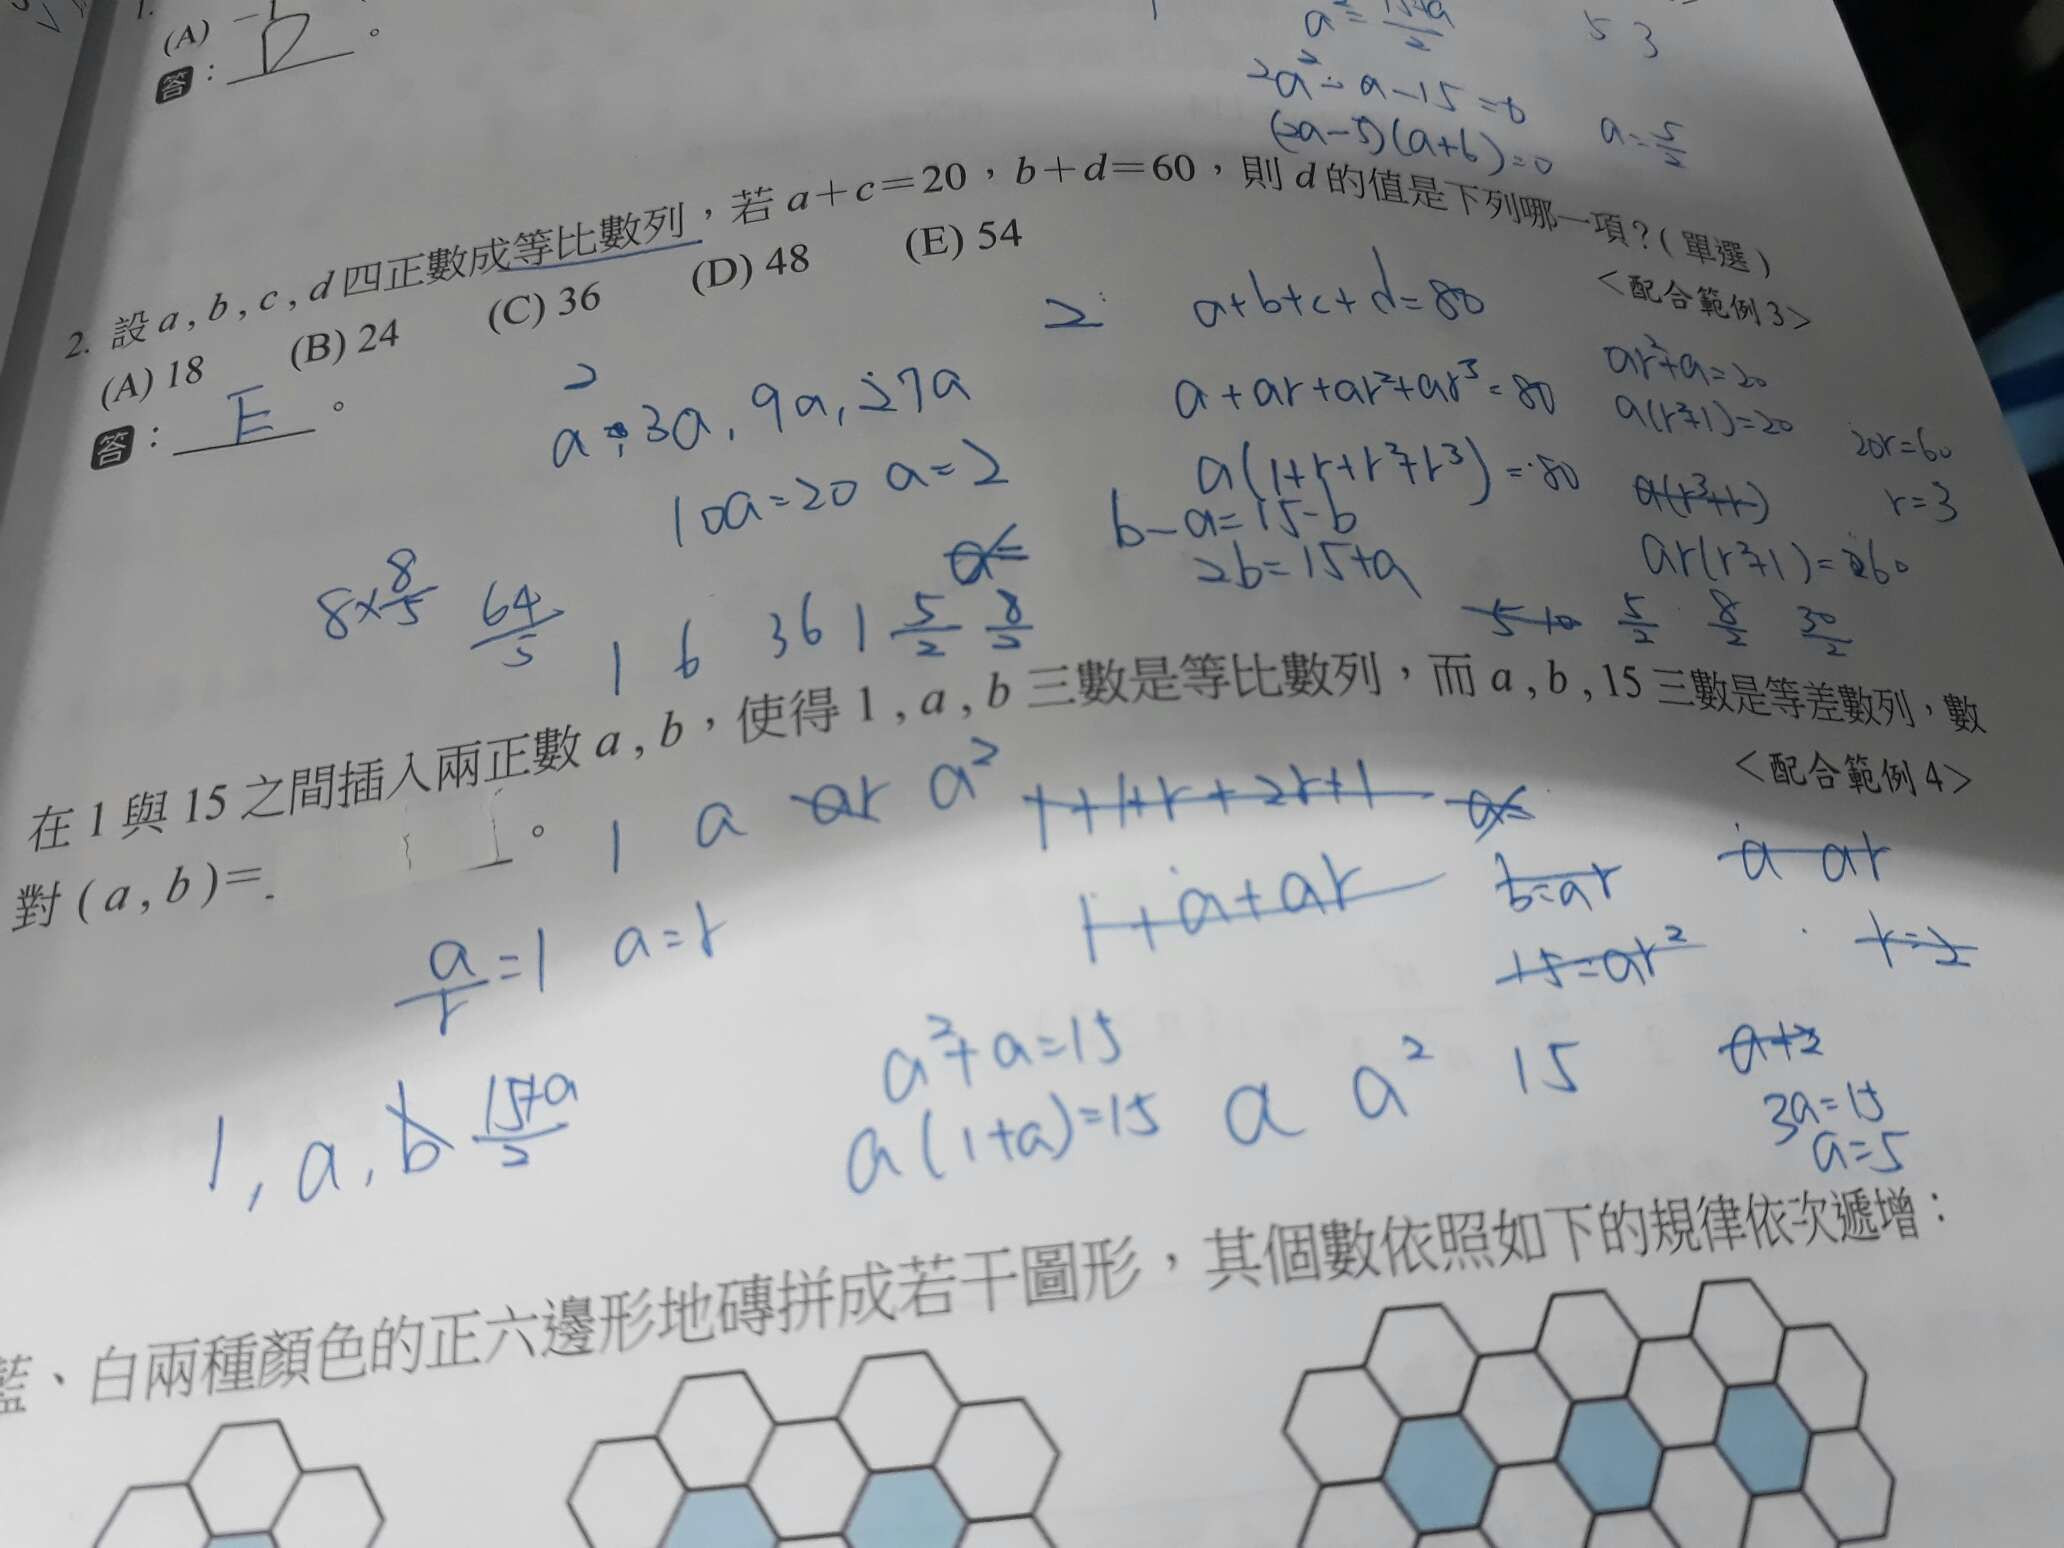 1.
(A)
答： D 。
a²=15+a/2
5 3
2a²-a-15=0
(2a-5)(a+6)=0
a=5/2
2. 設a,b,c,d四正數成等比數列，若a+c=20，b+d=60，則d的值是下列哪一項？(單選)
<配合範例3>
(A) 18 (B) 24 (C) 36 (D) 48 (E) 54
答： E 。
2
a, 3a, 9a, 27a
10a=20 a=2
2
a+b+c+d=80
a+ar+ar²+ar³=80
a(1+r+r²+r³)=80
b-a=15-b
2b=15+a
ar²+a=20
a(r²+1)=20
a(r³+r)
ar(r²+1)=60
20r=60
r=3
8×8/5 64/5
1 6 36 1 5/2
a=
5 10 5/2 8/2 30/2
在1與15之間插入兩正數a,b，使得1,a,b三數是等比數列，而a,b,15三數是等差數列，數
<配合範例4>
對(a,b)= 。
1 a ar a²
1+1+r+2r+1
a=
1+a+ar
b=ar
15=ar²
a ar
r=2
a/r=1 a=r
1, a, b 15+a/2
a²+a=15
a(1+a)=15
a a² 15
a+2
3a=15
a=5
藍、白兩種顏色的正六邊形地磚拼成若干圖形，其個數依照如下的規律依次遞增：